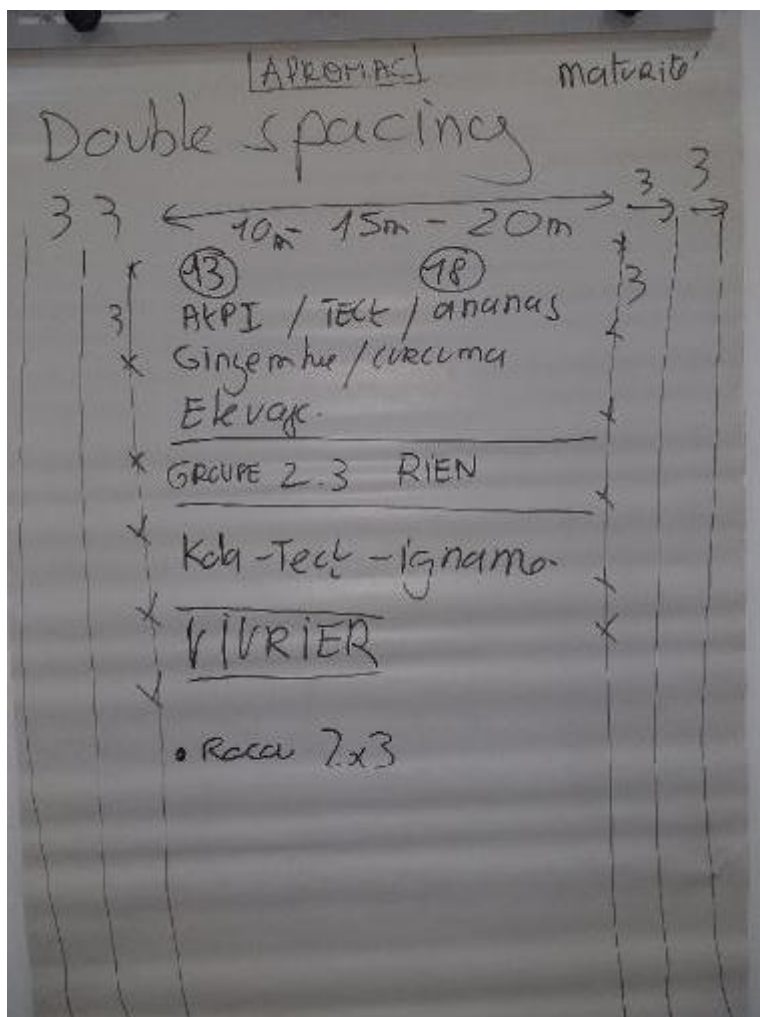 APROMAC
maturité
Double spacing
3 3
10m - 15m - 20m
3 3
13 18
3 3
AKPI / TECK / ananas
Gingembre / CURCUMA
Elevage.
GROUPE 2.3 RIEN
Kola - Teck - igname
VIVRIER